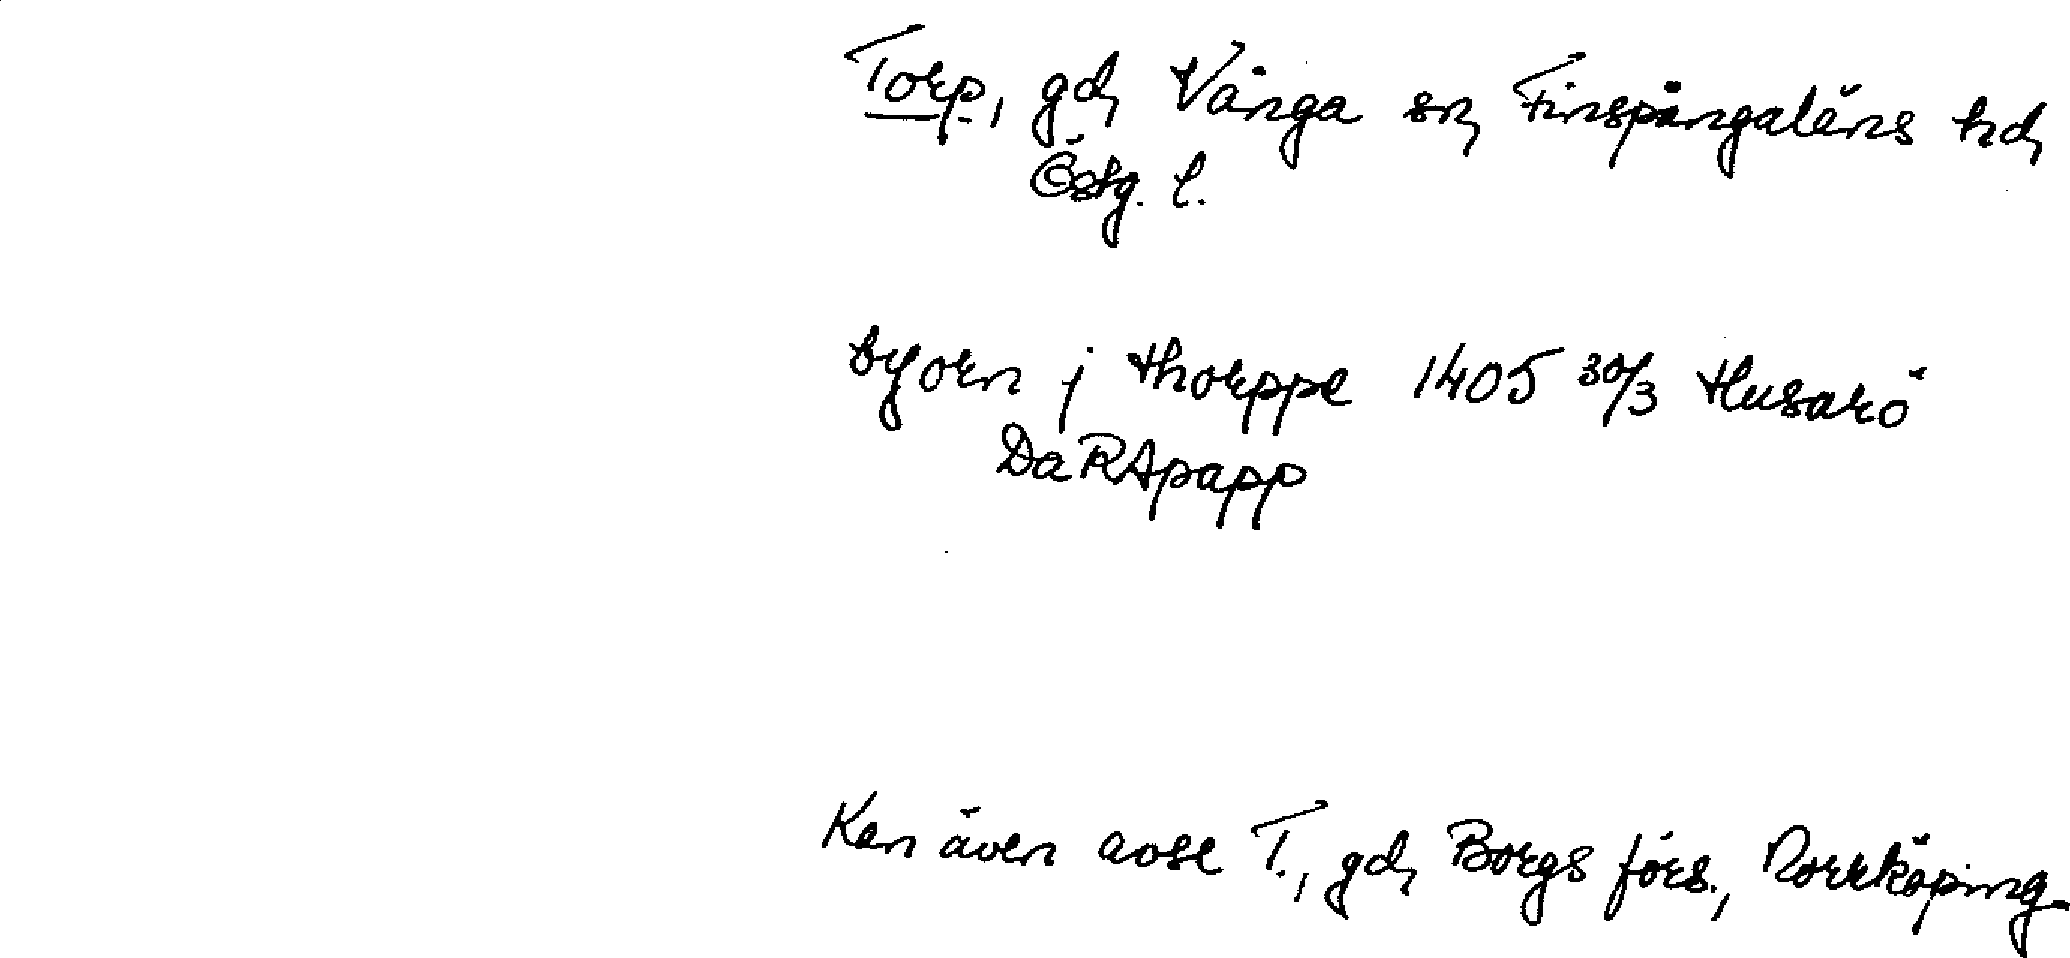 Torp, gd, Vånga sn, Finspångaläns hd,
Östg. l.
byorn j thorppe 1405 30/3 Husarö
DaRApapp
Kan även avse T., gd, Borgs förs., Norrköping